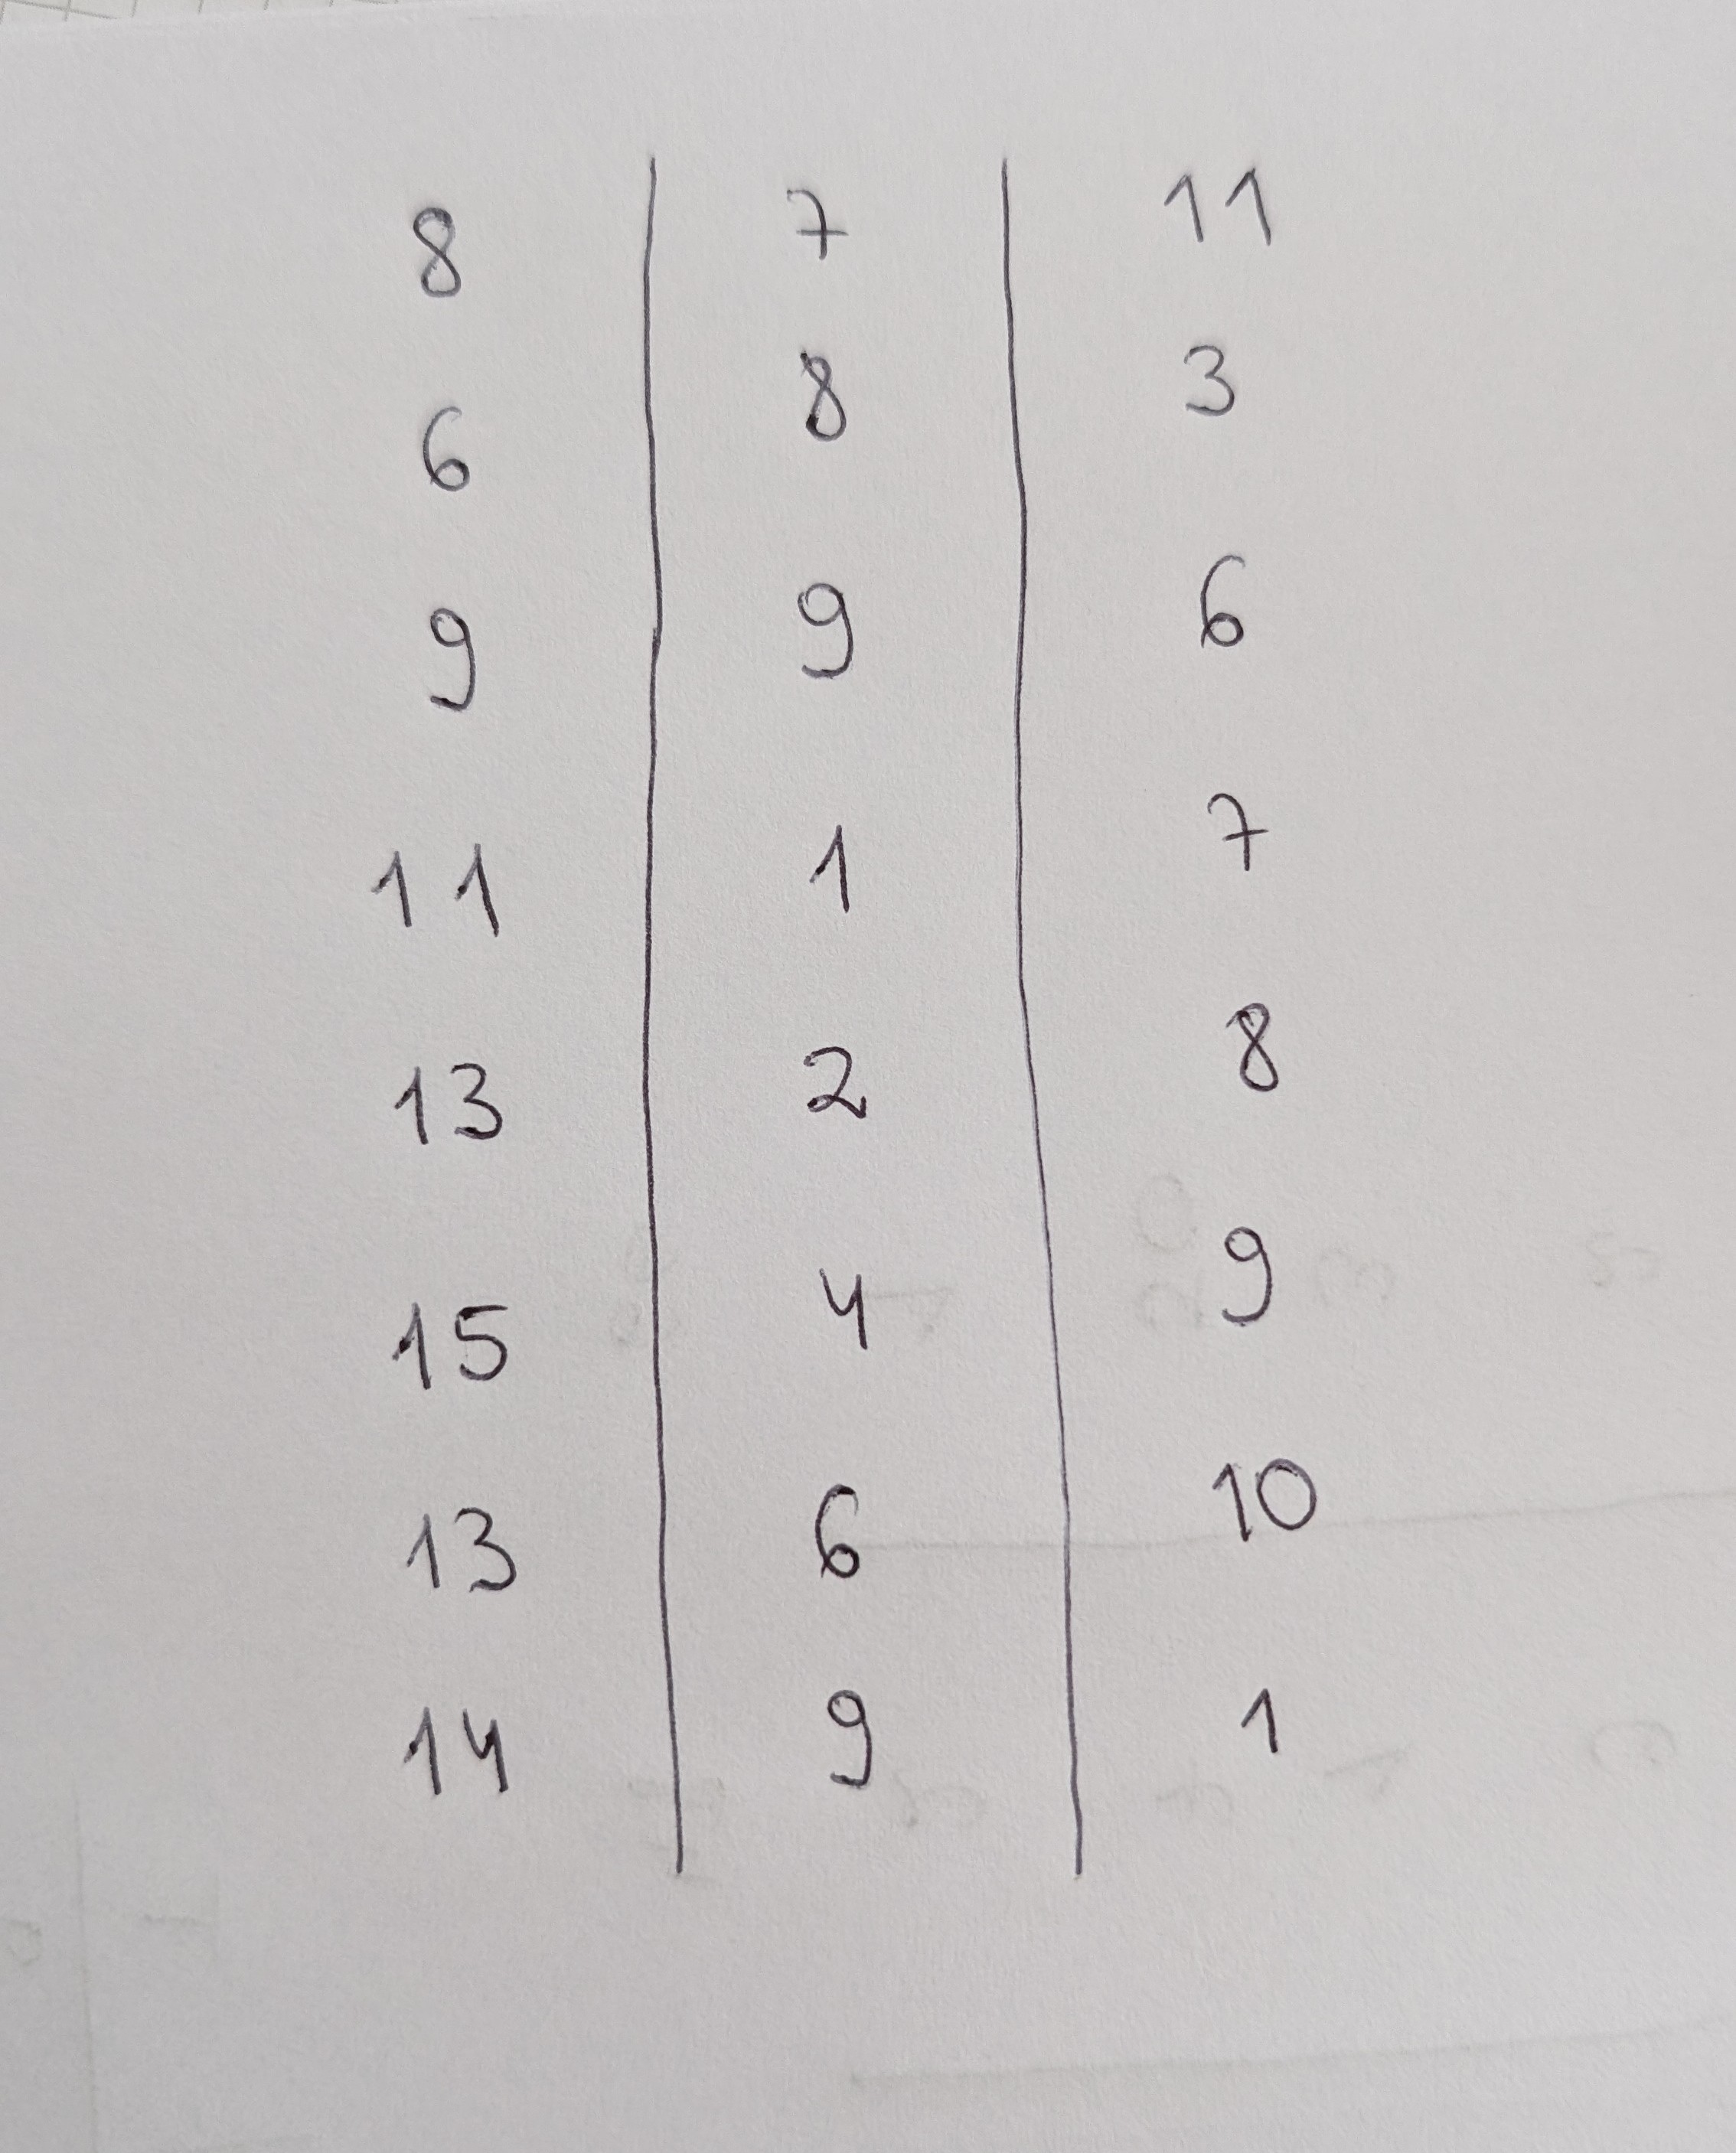 8 7 11
6 8 3
9 9 6
11 1 7
13 2 8
15 4 9
13 6 10
14 9 1